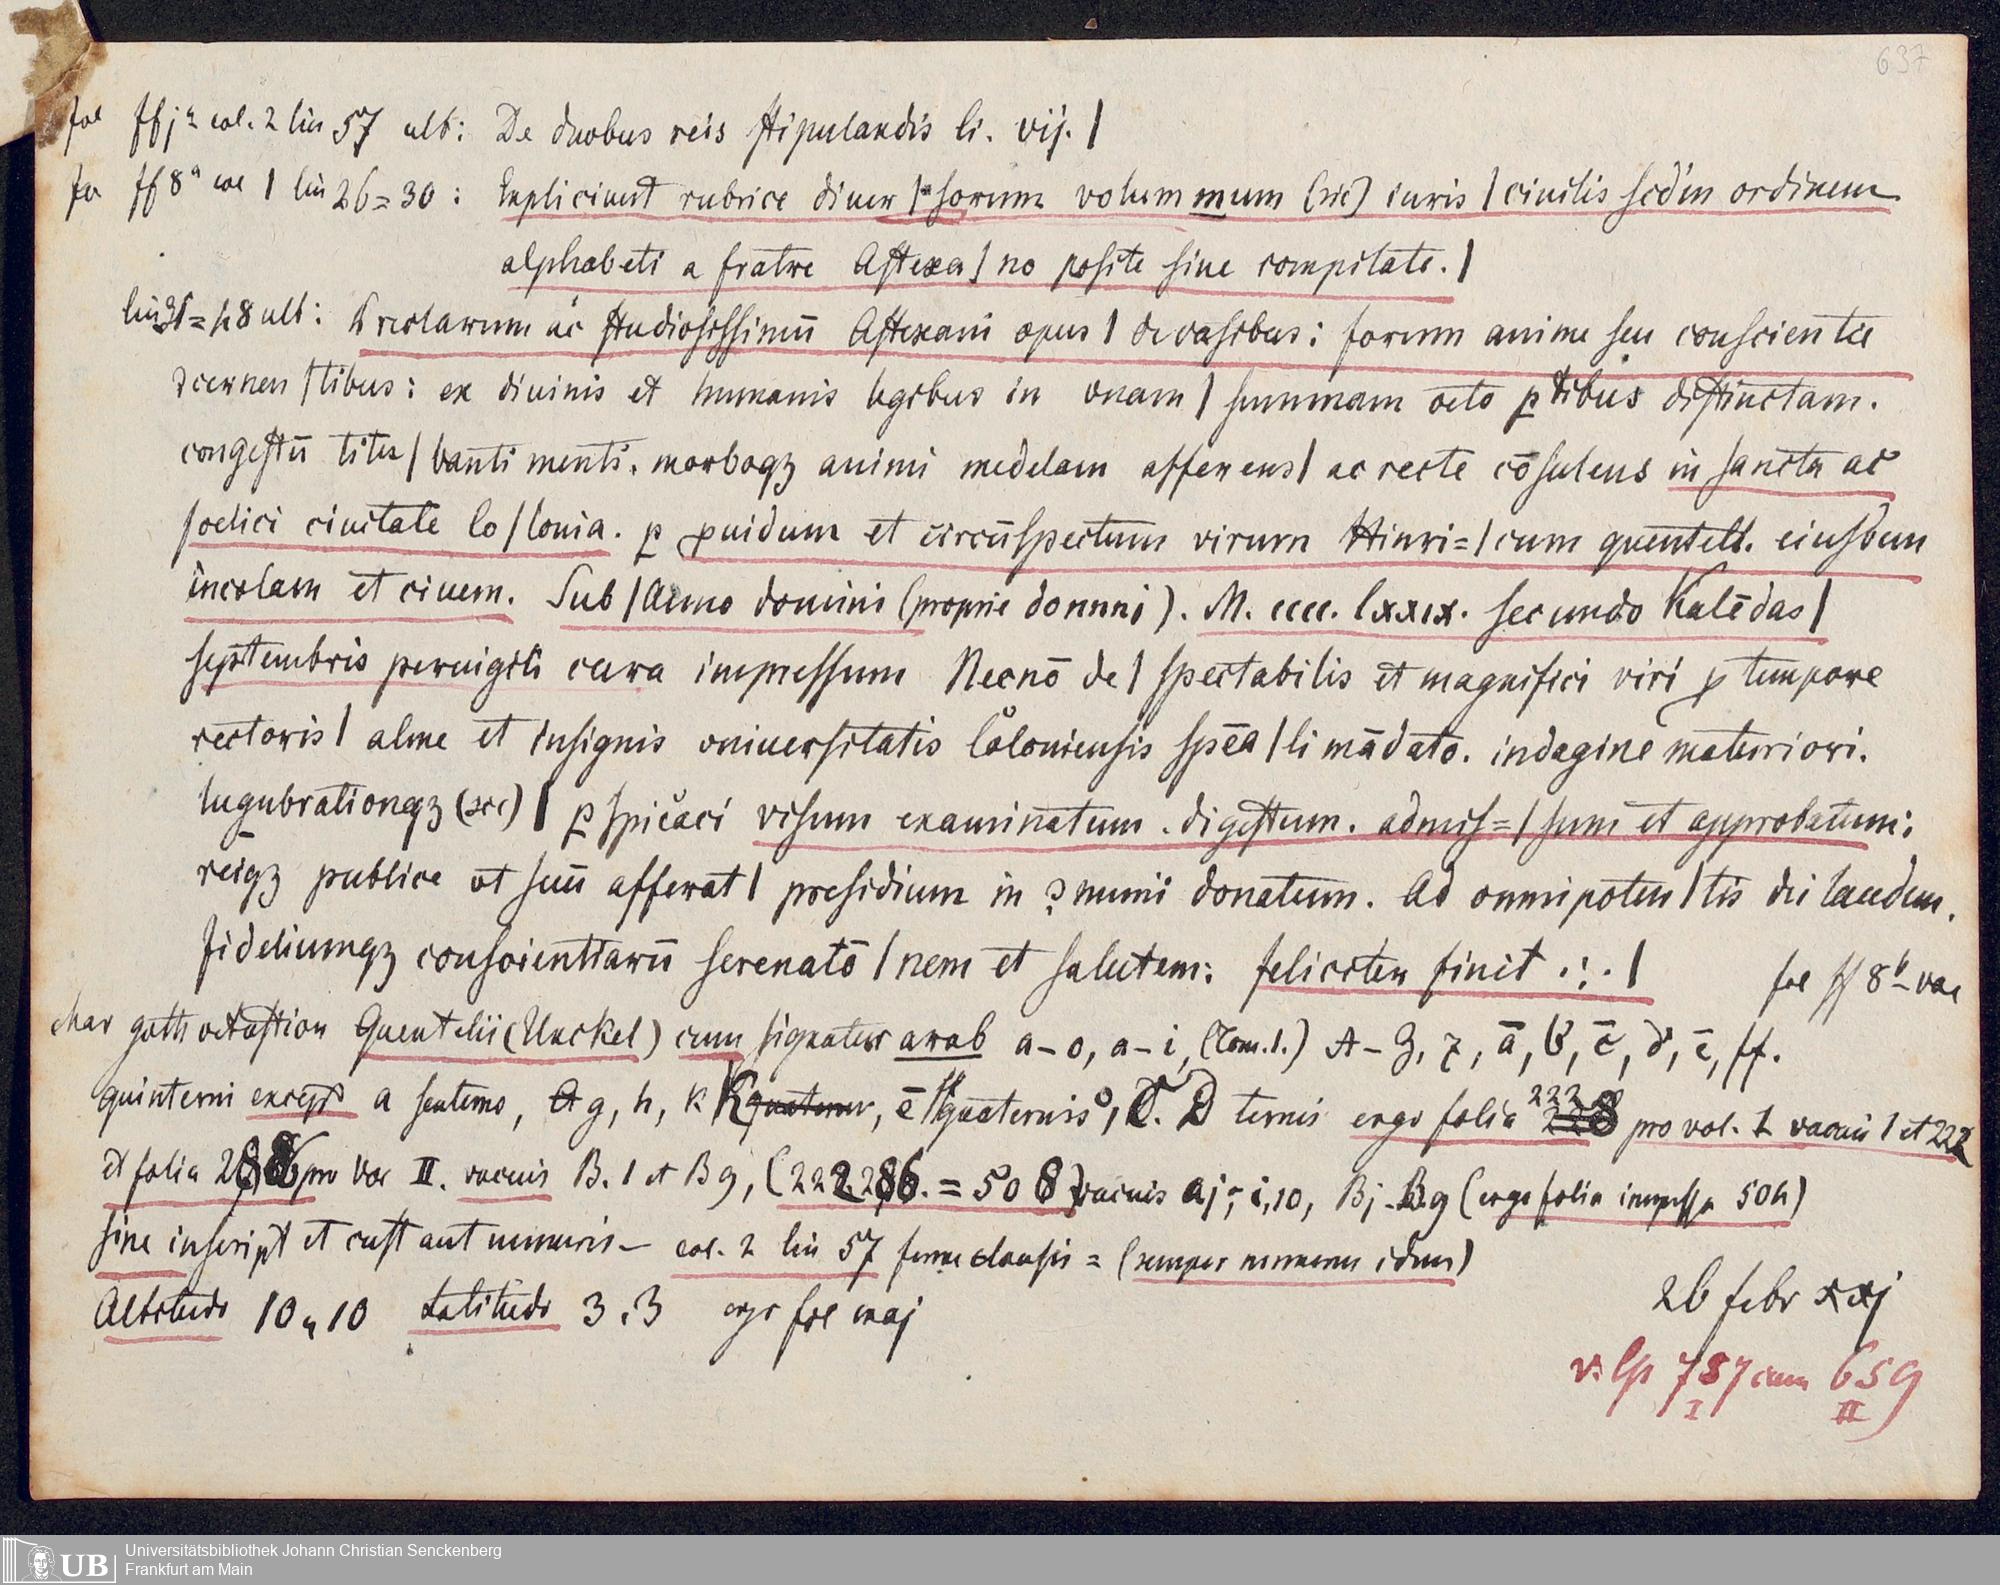 637
fol ffjᵃ col. 2 lin 57 ult: De duobus reis stipulandis li. vij. |
fol ff 8ᵃ col 1 lin 26=30 : Expliciunt rubrice diuer|sorum volummmum (sic) iuris | ciuilis scd'm ordinem
alphabeti a fratre Astexa | no posite siue compilate. |
lin 31=48 ult: Preclarum ac studiosissimū Astexani opus | de casibus: forum anime seu conscientie
ɔcernen | tibus: ex diuinis et humanis legibus in vnam | summam octo ptibus distinctam.
congestū titu | banti menti. morboqz animi medelam afferens | ac recte cōsulens in sancta ac
foelici ciuitate Co | lonia. p puidum et circūspectum virum Hinri= | cum quentell. eiusdem
incolam et ciuem. Sub | Anno domini (proprie donnni). M. cccc. lxxix. secundo Kalēdas |
septembris peruigili cura impressum Necnō de | spectabilis et magnifici viri p tempore
rectoris | alme et insignis vniuersitatis Coloniensis spēa | li mādato. indagine maturiori.
lugubrationeqz (sic) | pspicaci visum examinatum. digestum. admis= | sum et approbatum:
reiqz publice vt suū afferat | presidium in ɔmuni donatum. Ad omnipoten | tis dei laudem.
fideliumqz conscientiarū serenatō | nem et salutem: feliciter finit .:. | fol ff 8ᵇ vac
char goth vetustior Quentelii (Unckel) cum signatur arab a–o, a–i, (Tom. 1.) A–Z, z, ā, b̄, c̄, d̄, ē, ff.
quinterni except a senterno, g, h, k quaternis, C. D ternis ergo folia 222 228 pro vol. 1 vacuis 1 et 222
et folia 286 pro vol II. vacuis B. 1 et B 9, (222 286. = 508) vacuis aj, i, 10, Bj–B9 (ergo folia impressa 504)
sine inscript et cust aut numeris – col. 2 lin 57 ferme clausis = (semper numerus idem)
Altitudo 10,10 Latitudo 3.3 ergo fol maj
26 febr xxj
v. Cp 787 cum 659
I II
UB
Universitätsbibliothek Johann Christian Senckenberg
Frankfurt am Main